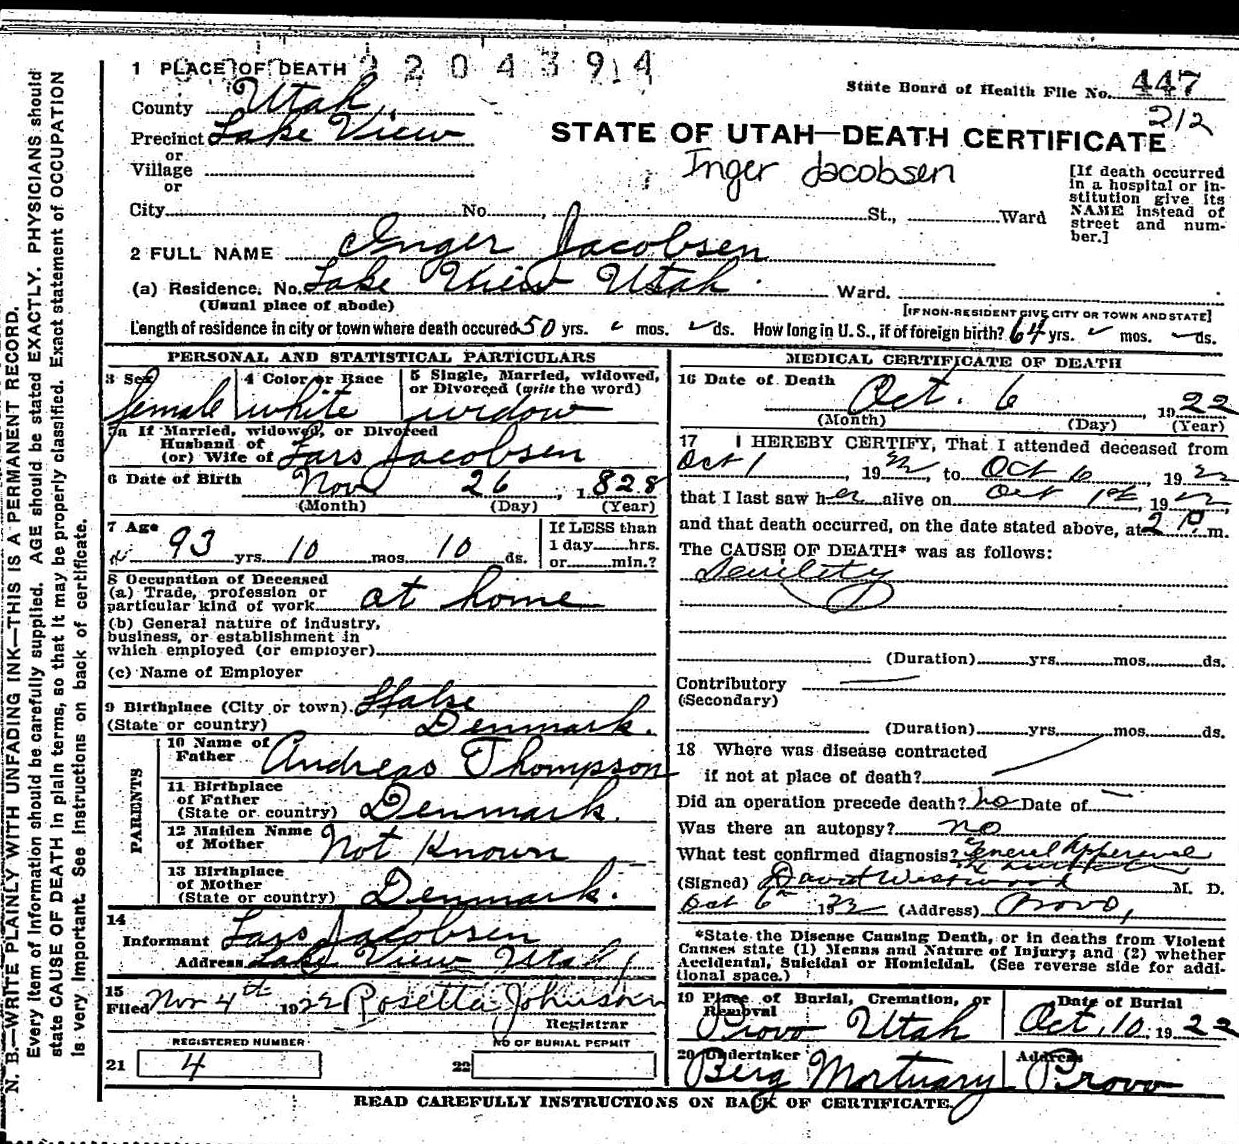 1 PLACE OF DEATH 2204394
State Board of Health File No. 447
212
County Utah
Precinct Lake View
STATE OF UTAH—DEATH CERTIFICATE
or
Village
Inger Jacobsen
or
[If death occurred in a hospital or institution give its NAME instead of street and number.]
City No. St., Ward
2 FULL NAME Inger Jacobsen
(a) Residence. No. Lake View Utah Ward.
(Usual place of abode) [IF NON-RESIDENT GIVE CITY OR TOWN AND STATE]
Length of residence in city or town where death occured 50 yrs. mos. ds. How long in U. S., if of foreign birth? 64 yrs. mos. ds.
PERSONAL AND STATISTICAL PARTICULARS
3 Sex 4 Color or Race 5 Single, Married, widowed,
or Divorced (write the word)
female white widow
5a If Married, widowed, or Divorced
Husband of
(or) Wife of Lars Jacobsen
6 Date of Birth Nov 26, 1828
(Month) (Day) (Year)
7 Age 93 yrs. 10 mos. 10 ds.
If LESS than
1 day hrs.
or min.?
8 Occupation of Deceased
(a) Trade, profession or
particular kind of work at home
(b) General nature of industry,
business, or establishment in
which employed (or employer)
(c) Name of Employer
9 Birthplace (City or town)
(State or country) Denmark.
PARENTS
10 Name of
Father Andreas Thompson
11 Birthplace
of Father
(State or country) Denmark.
12 Maiden Name
of Mother Not Known
13 Birthplace
of Mother
(State or country) Denmark.
14
Informant Lars Jacobsen
Address Lake View Utah
15
Filed Nov 4th 1922 Rosetta Johnson
Registrar
REGISTERED NUMBER NO OF BURIAL PERMIT
21 4 22
MEDICAL CERTIFICATE OF DEATH
16 Date of Death Oct. 6, 1922
(Month) (Day) (Year)
17 I HEREBY CERTIFY, That I attended deceased from
Oct 1, 1922 to Oct 6, 1922
that I last saw her alive on Oct 1st, 1922,
and that death occurred, on the date stated above, at 2 P. m.
The CAUSE OF DEATH* was as follows:
Senility
(Duration) yrs. mos. ds.
Contributory
(Secondary)
(Duration) yrs. mos. ds.
18 Where was disease contracted
if not at place of death?
Did an operation precede death? no Date of
Was there an autopsy? no
What test confirmed diagnosis? General
(Signed) David Westwood M. D.
Oct 6th 1922 (Address) Provo,
*State the Disease Causing Death, or in deaths from Violent
Causes state (1) Means and Nature of Injury; and (2) whether
Accidental, Suicidal or Homicidal. (See reverse side for additional space.)
19 Place of Burial, Cremation, or
Removal
Provo Utah
Date of Burial
Oct. 10, 1922
20 Undertaker
Berg Mortuary
Address
Provo
READ CAREFULLY INSTRUCTIONS ON BACK OF CERTIFICATE.
N. B.—WRITE PLAINLY WITH UNFADING INK—THIS IS A PERMANENT RECORD.
Every item of information should be carefully supplied. AGE should be stated EXACTLY. PHYSICIANS should
state CAUSE OF DEATH in plain terms, so that it may be properly classified. Exact statement of OCCUPATION
is very important. See instructions on back of certificate.